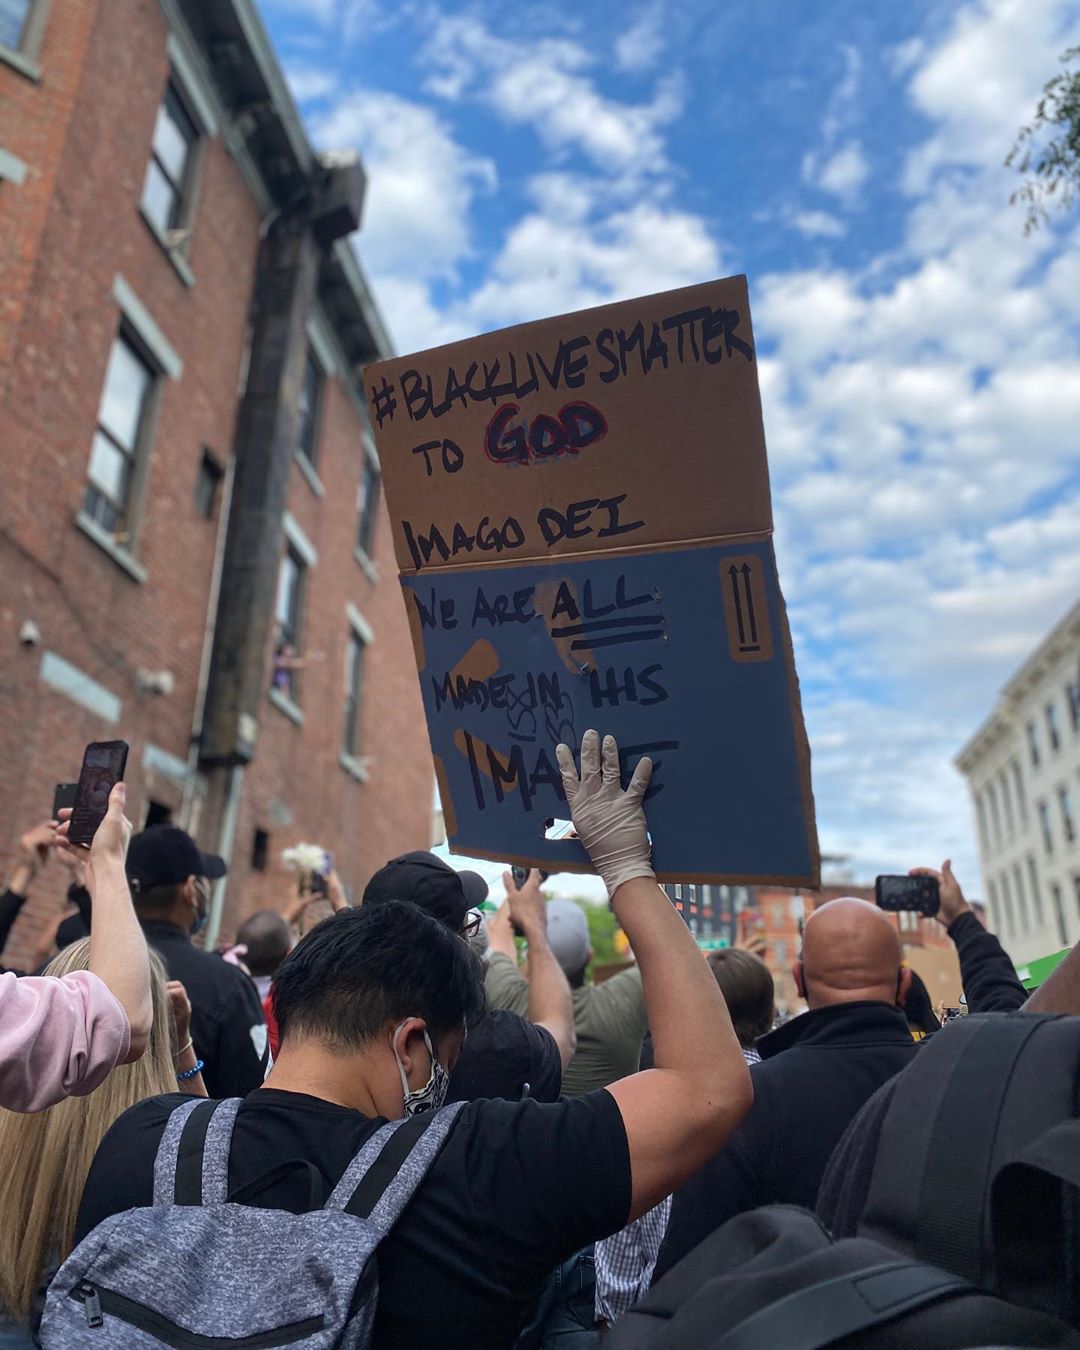 #BLACKLIVESMATTER
TO GOD
IMAGO DEI
WE ARE ALL
MADE IN HIS